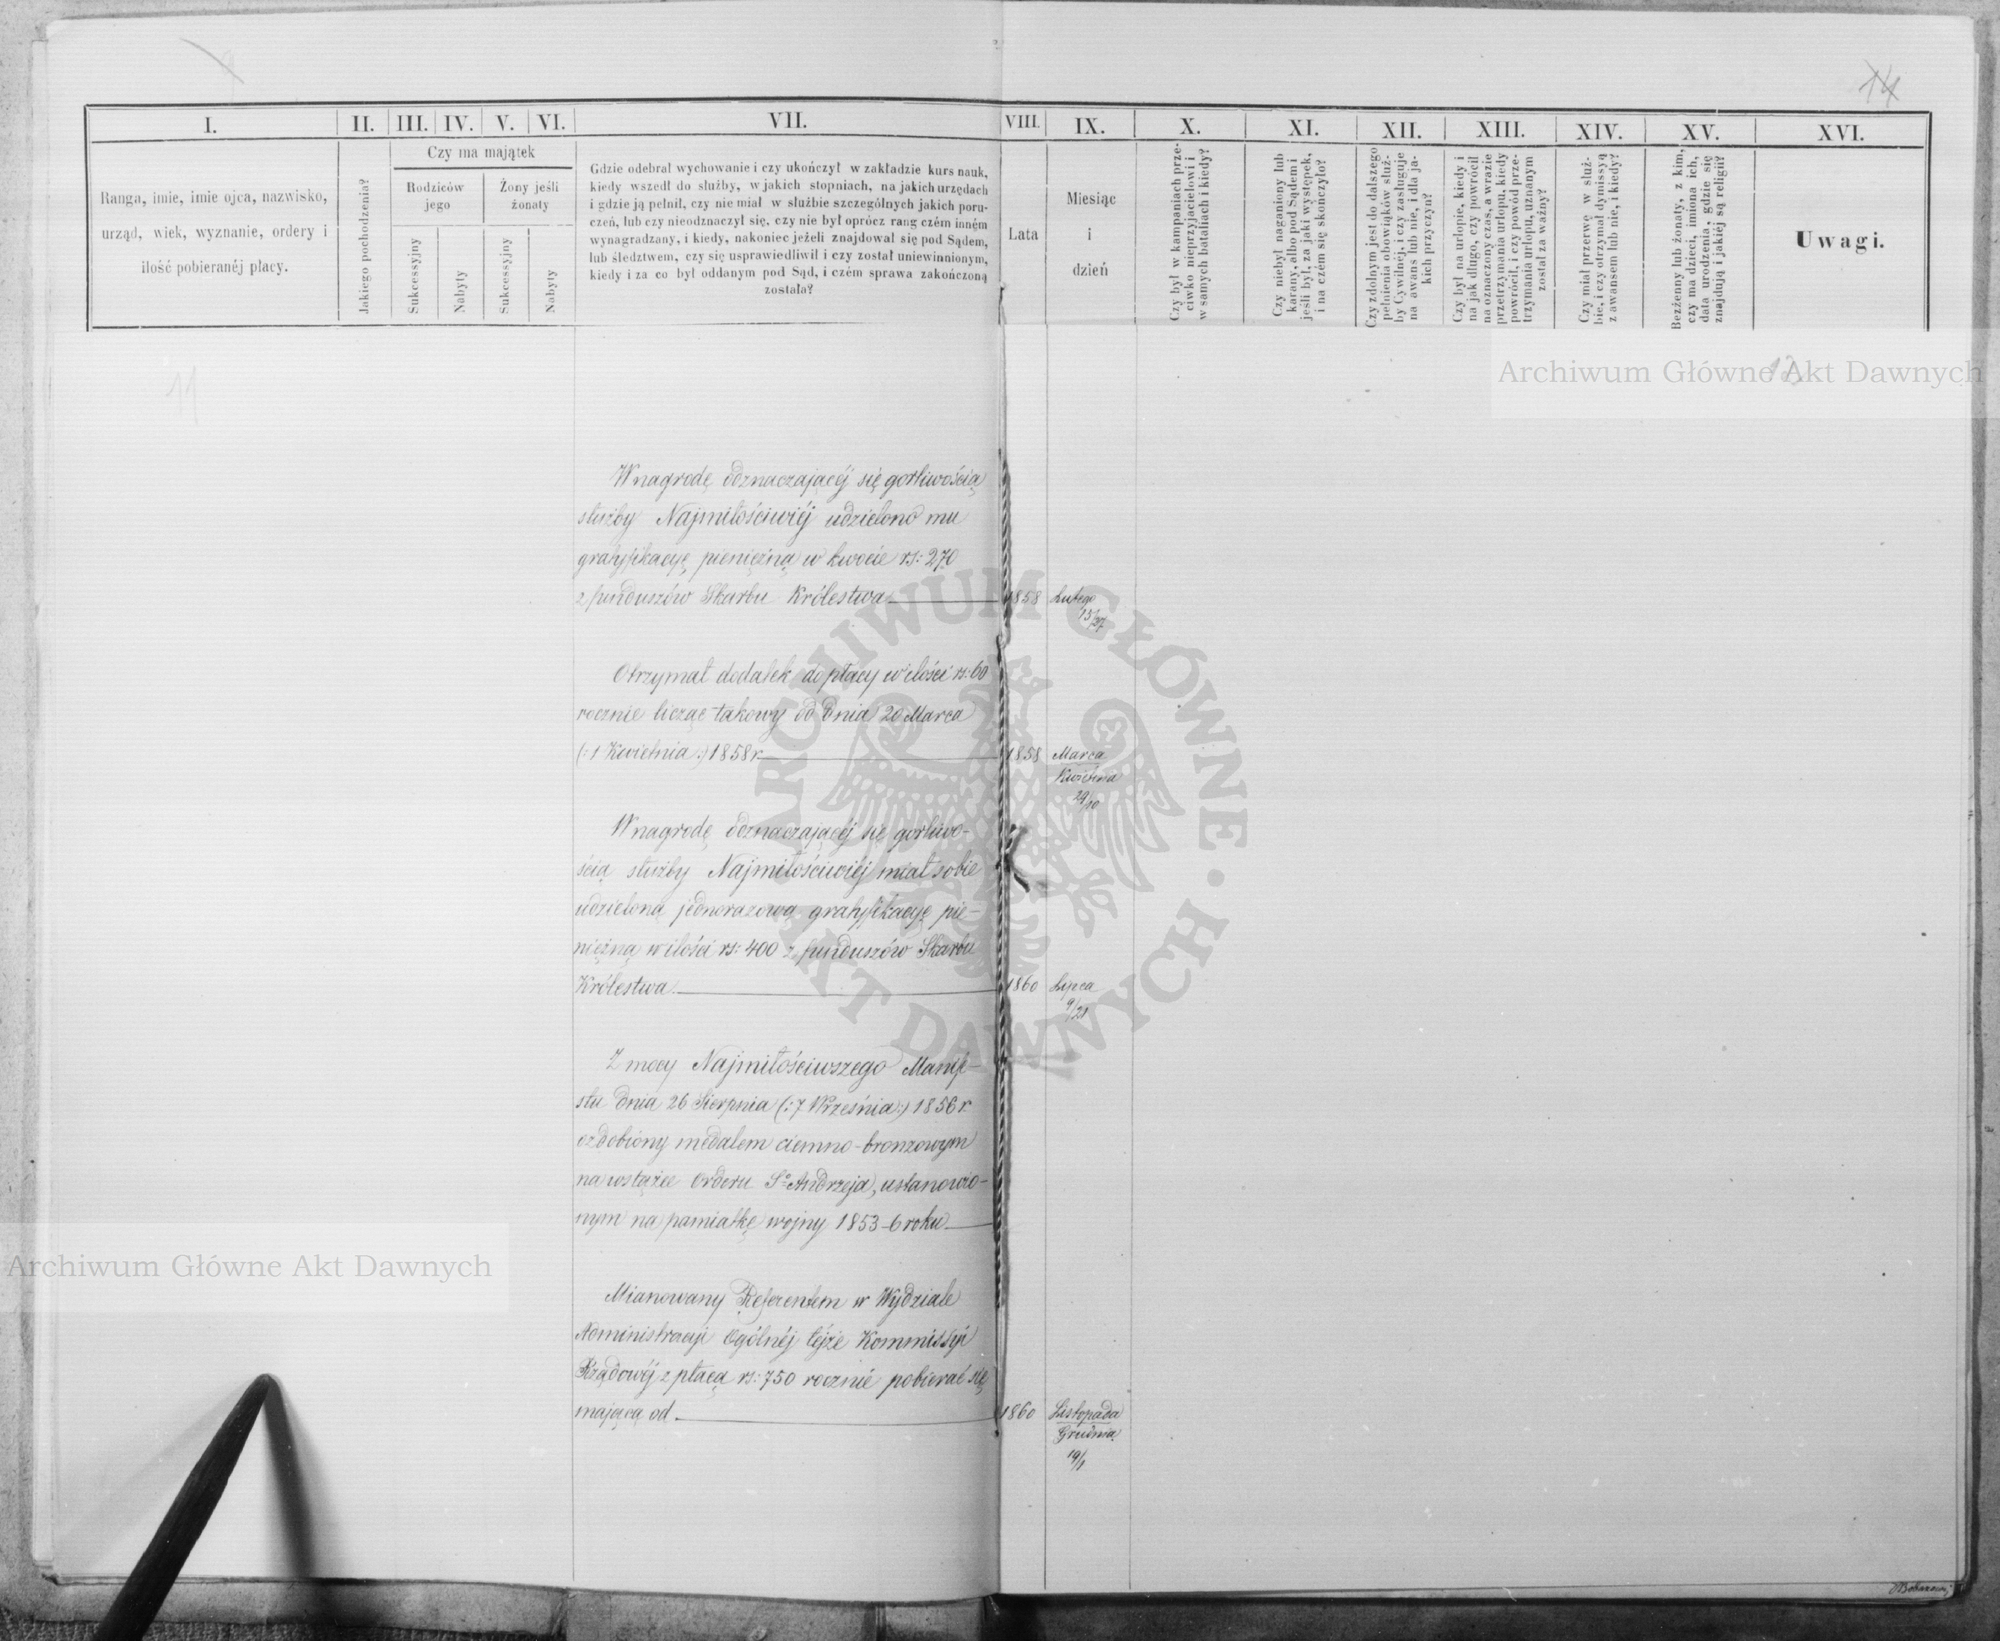 14
I. II. III. IV. V. VI. VII. VIII. IX. X. XI. XII. XIII. XIV. XV. XVI.
Ranga, imie, imie ojca, nazwisko,
urząd, wiek, wyznanie, ordery i
ilość pobieranéj płacy.
Jakiego pochodzenia?
Czy ma majątek
Rodziców
jego
Żony jeśli
żonaty
Sukcessyjny
Nabyty
Sukcessyjny
Nabyty
Gdzie odebrał wychowanie i czy ukończył w zakładzie kurs nauk,
kiedy wszedł do służby, w jakich stopniach, na jakich urzędach
i gdzie ją pełnił, czy nie miał w służbie szczególnych jakich poru-
czeń, lub czy nieodznaczył się, czy nie był oprócz rang czém inném
wynagradzany, i kiedy, nakoniec jeżeli znajdował się pod Sądem,
lub śledztwem, czy się usprawiedliwił i czy został uniewinnionym,
kiedy i za co był oddanym pod Sąd, i czém sprawa zakończoną
została?
Lata
Miesiąc
i
dzień
Czy był w kampaniach prze-
ciwko nieprzyjacielowi i
w samych bataliach i kiedy?
Czy niebył naganiony lub
karany, albo pod Sądem i
jeśli był, za jaki występek,
i na czém się skończyło?
Czy zdolnym jest do dalszego
pełnienia obowiąków służ-
by Cywilnéj, i czy zasługuje
na awans lub nie, i dla ja-
kich przyczyn?
Czy był na urlopie, kiedy i
na jak długo, czy powrócił
na oznaczony czas, a w razie
przetrzymania urlopu, kiedy
powrócił, i czy powód prze-
trzymania urlopu, uznanym
został za ważny?
Czy miał przerwę w służ-
bie, i czy otrzymał dymissyą
z awansem lub nie, i kiedy?
Bezżenny lub żonaty, z kim,
czy ma dzieci, imiona ich,
data urodzenia, gdzie się
znajdują i jakiéj są religii?
Uwagi.
11
Archiwum Główne Akt Dawnych
W nagrodę odznaczającéj się gorliwością
służby Najmiłościwiéj udzielono mu
gratyfikacyę pieniężną w kwocie rs: 270
z funduszów Skarbu Królestwa 1858 Lutego
15/27
Otrzymał dodatek do płacy w ilości rs: 60
rocznie licząc takowy od dnia 20 Marca
(:1 Kwietnia:) 1858 r. 1858 Marca
Kwietnia
29/10
W nagrodę odznaczającéj się gorliwo-
ścią służby Najmiłościwiéj miał sobie
udzieloną jednorazową gratyfikacyę pie-
niężną w ilości rs: 400 z funduszów Skarbu
Królestwa 1860 Lipca
9/21
Z mocy Najmiłościwszego Manife-
stu dnia 26 Sierpnia (:7 Września:) 1856 r.
ozdobiony medalem ciemno-bronzowym
na wstążce Orderu Sgo Andrzeja, ustanowio-
nym na pamiatkę wojny 1853-6 roku
Mianowany Referentem w Wydziale
Administracyi Ogólnéj tejże Kommissyi
Rządowéj z płacą rs: 750 rocznie pobierać się
mającą od 1860 Listopada
Grudnia
19/1
ARCHIWUM GŁÓWNE AKT DAWNYCH
Archiwum Główne Akt Dawnych